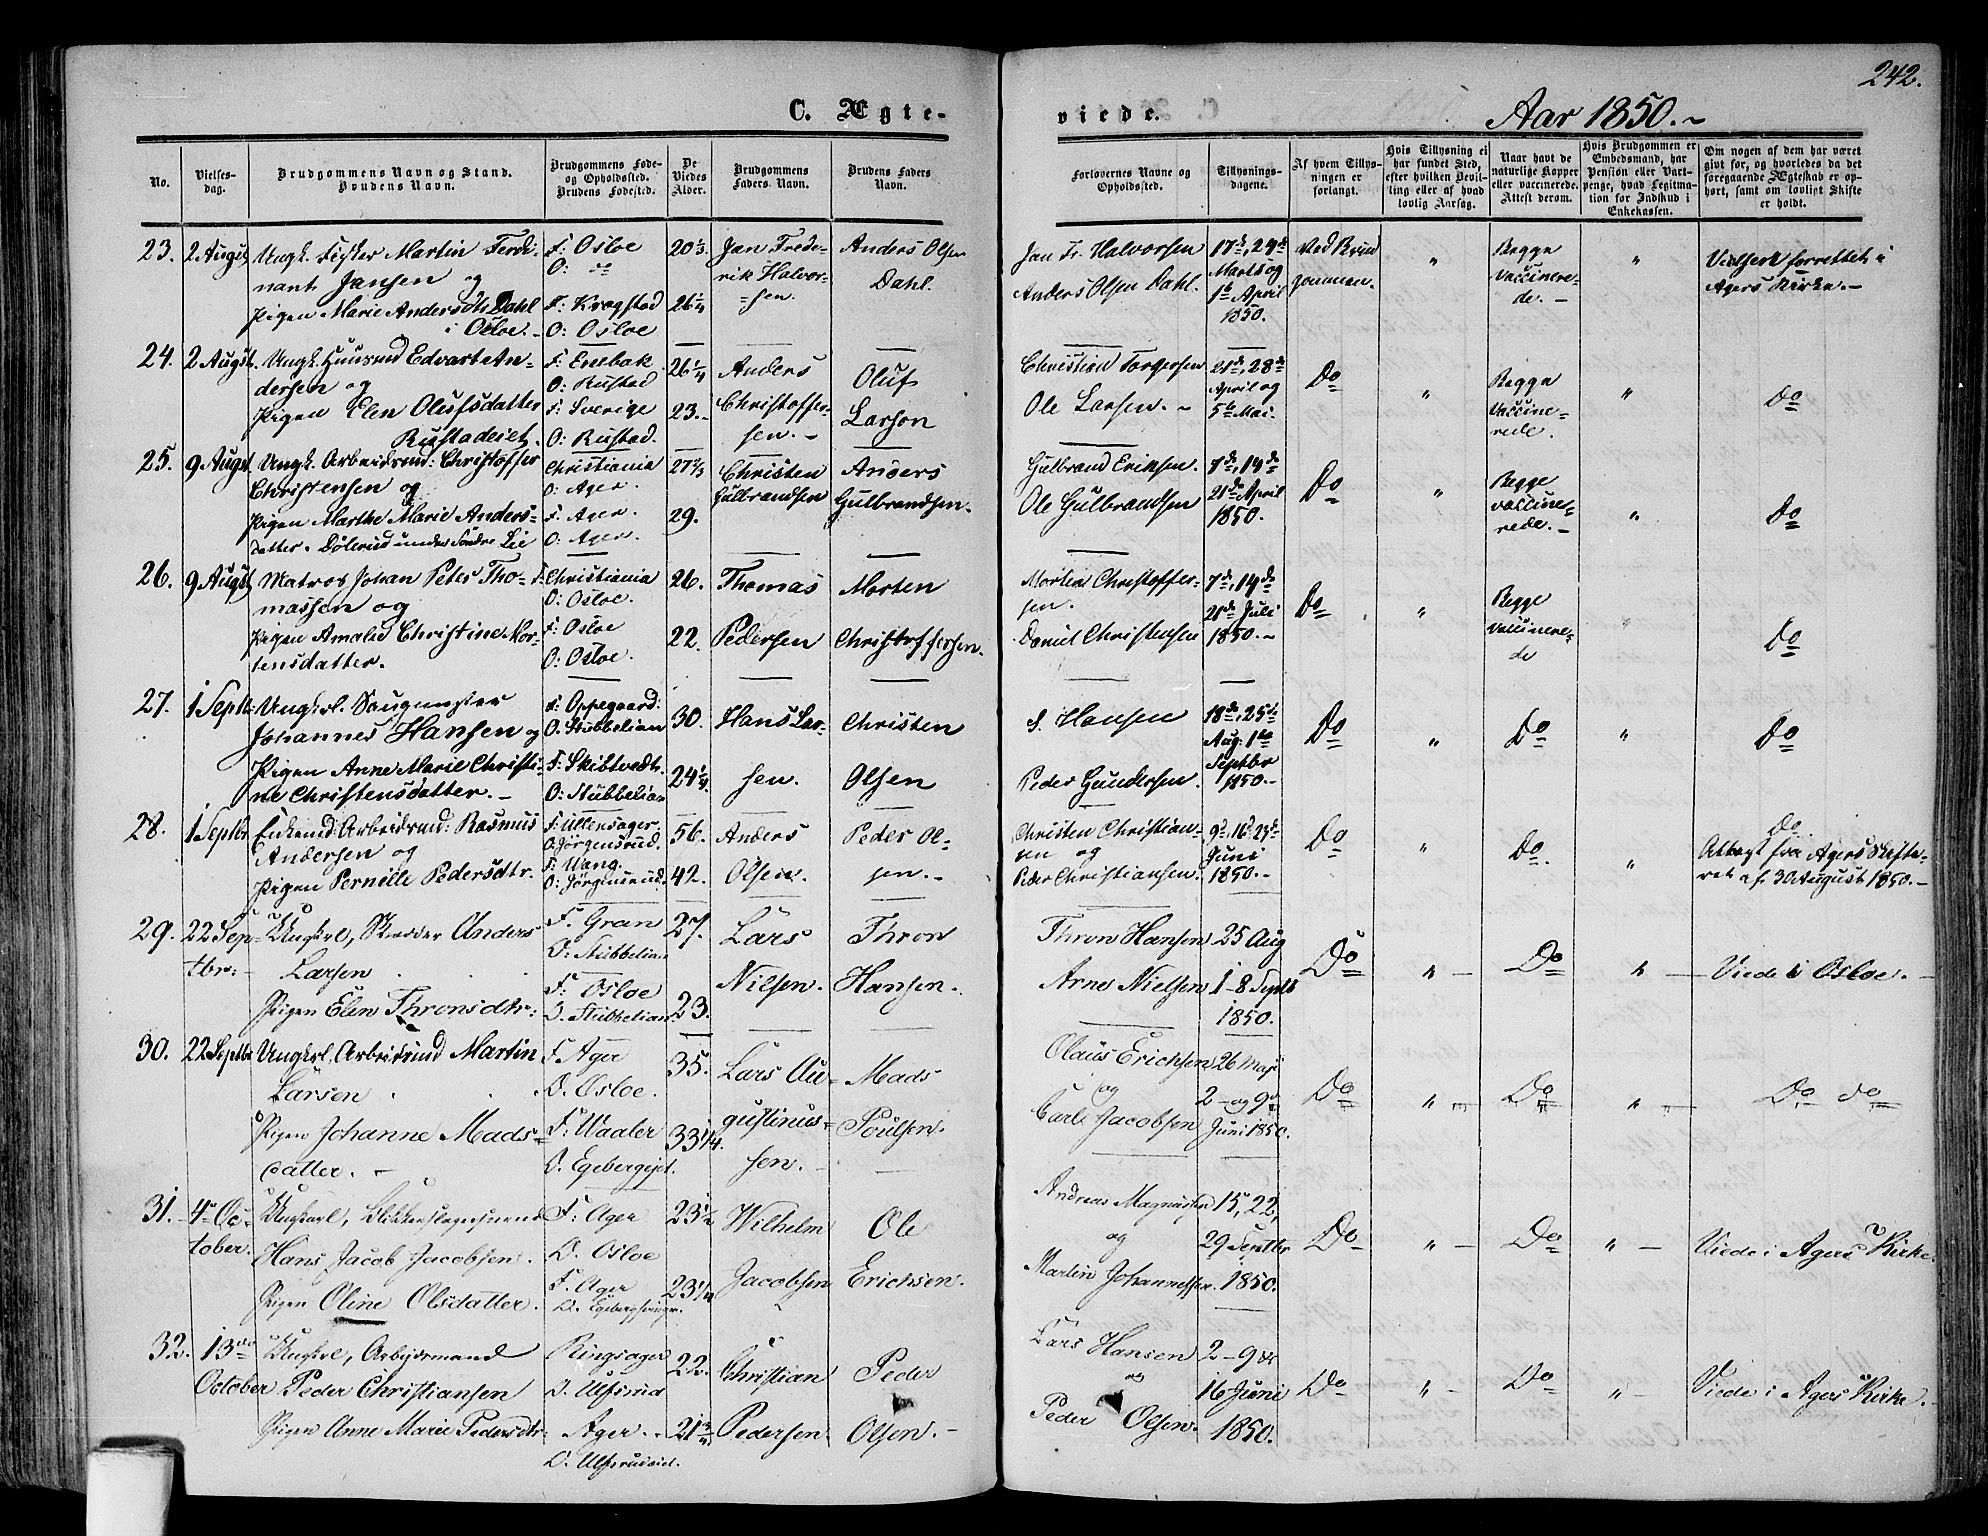 242.
C. Ægte-
viede.
Aar 1850.
No.
Vielses-
dag.
Brudgommens Navn og Stand.
Brudens Navn.
Brudgommens Føde-
og Opholdssted.
Brudens Fødested.
De
Viedes
Alder.
Brudgommens
Faders Navn.
Brudens Faders
Navn.
Forlovernes Navne og
Opholdssted.
Tillysnings-
dagene.
Af hvem Tillys-
ningen er
forlangt.
Hvis Tillysning ei
har fundet Sted,
efter hvilken Bevil-
ling eller af hvad
lovlig Aarsag.
Naar havt de
naturlige Kopper
eller vaccinerede.
Attest derom.
Hvis Brudgommen er
Embedsmand, har
Pension eller Vart-
penge, hvad Legitima-
tion for Indskud i
Enkekassen.
Om nogen af dem har været
gift før, og hvorledes da det
foregaaende Ægteskab er op-
hørt, samt om lovligt Skifte
er holdt.
23. 2 August
Ungk. Fisker Martin Ferdi-
nant Jansen og
Pigen Marie Anders Dt. Dahl
i Osloe.
F: Osloe
O: do
F: Krogstad
O: Osloe
20 1/3
26 1/4
Jan Frede-
rik Halvor-
sen.
Anders Olsen
Dahl.
Jan Fr. Halvorsen
Anders Olsen Dahl.
17de, 24de
Marts og
1te April
1850.
Ved Brud
gommen.
"
Begge
Vaccinere-
de.
"
Vielsen forrettet i
Agers Kirke.
24. 2 August
Ungk. Huusmd Edvart An-
dersen og
Pigen Elen Olufsdatter
Rustadeiet.
F: Enebak
O: Rustad
F: Sverige
O: Rustad.
26 1/4
23.
Anders
Christoffer-
sen.
Oluf
Larson
Christian Torgersen
Ole Larsen.
21de, 28de
April og
5te Mai.
Do
"
Begge
Vaccine-
rede.
"
Do
25. 9 August
Ungk. Arbeidsmd: Christoffer
Christensen og
Pigen Marthe Marie Anders-
datter. Dølerud under Søndre Lie
Christiania
O: Ager.
F: Ager.
O: Ager.
27 1/3
29.
Christen
Gulbrandsen
Anders
Gulbrandsen.
Gulbrand Eriksen.
Ole Gulbrandsen
7de, 14de
21de April
1850.
Do
"
Begge
vaccine-
rede.
"
Do
26. 9 August
Matros Johan Peter Tho-
massen og
Pigen Amalie Christine Mor-
tensdatter.
F: Christiania
O: Osloe.
F: Osloe
O: Osloe.
26.
22.
Thomas
Pedersen
Morten
Christoffersen.
Morten Christoffer-
sen.
Daniel Christensen
7de, 14de
21de Juli
1850.
Do
"
Begge
Vaccinere-
de
"
Do
27. 1 Septbr
Ungkrl. Saugmester
Johannes Hansen og
Pigen Anne Marie Christi-
ne Christensdatter.
F: Oppegaard:
O: Stubbelian
F: Skibtvedt.
O: Stubbelian
30.
24 1/4
Hans Lar-
sen.
Christen
Olsen
S. Hansen
Peder Gundersen.
18de, 25de
Aug: 1te
Septbr
1850.
Do
"
Do
"
Do
28. 1 Septbr.
Enkemd: Arbeidsmd: Rasmus
Andersen og
Pigen Pernille Pedersdtr.
F: Ullensager.
O: Jørgensrud.
F: Vang.
O: Jørgensrud.
56.
42.
Anders
Olsen.
Peder Ol-
sen.
Christen Christian-
sen og
Peder Christiansen.
9de, 16de 23de
Juni
1850.
Do
"
Do.
"
Do
Attest fra Agers Skifte-
ret af 30 August 1850.
29. 22 Sep-
tbr:
Ungkrl, Skrædder Anders
Larsen
Pigen Elen Thronsdtr:
F. Gran
O. Stubbelian
F. Osloe
O. Stubbelian
27.
23.
Lars
Nilsen.
Thron
Hansen.
Thron Hansen
Arne Nielsen
25 Aug
1-8 Septb
1850.
Do
"
Do
"
Viede i Osloe.
30. 22 Septbr
Ungkrl. Arbeidsmd Martin
Larsen
Pigen Johanne Mads-
datter.
F. Ager
O. Osloe.
F. Vaaler
O. Egebergejet.
35.
33 1/4.
Lars Au-
gustinus-
sen.
Mads
Poulsen.
Olaus Erichsen
og
Carl Jacobsen
26 Maji
2 - og 9de
Juni 1850.
Do
"
Do
"
Do do
31. 4de Oc-
tober.
Ungkarl, Blikkenslagersvend
Hans Jacob Jacobsen.
Pigen Oline Olsdatter.
F. Ager
O. Osloe
F. Ager
23 1/2
23 1/4
Wilhelm
Jacobsen
Ole
Erichsen.
Andreas Magnussen
og
Martin Johannessen.
15, 22,
29 Septbr
1850.
Do
"
Do
"
Viede i Agers Kirke.
32. 13de
October
Ungkrl, Arbejdsmand
Peder Christiansen
Pigen Anne Marie Pedersdtr
Ringsager
O. Ulfsrud
Ager.
O. Ulfsrudeiet.
22.
21 3/4
Christian
Pedersen
Peder
Olsen.
Lars Hansen
og
Peder Olsen.
2 - 9de
16 Juni
1850.
Do
"
Do
"
Viede i Agers Kirke.